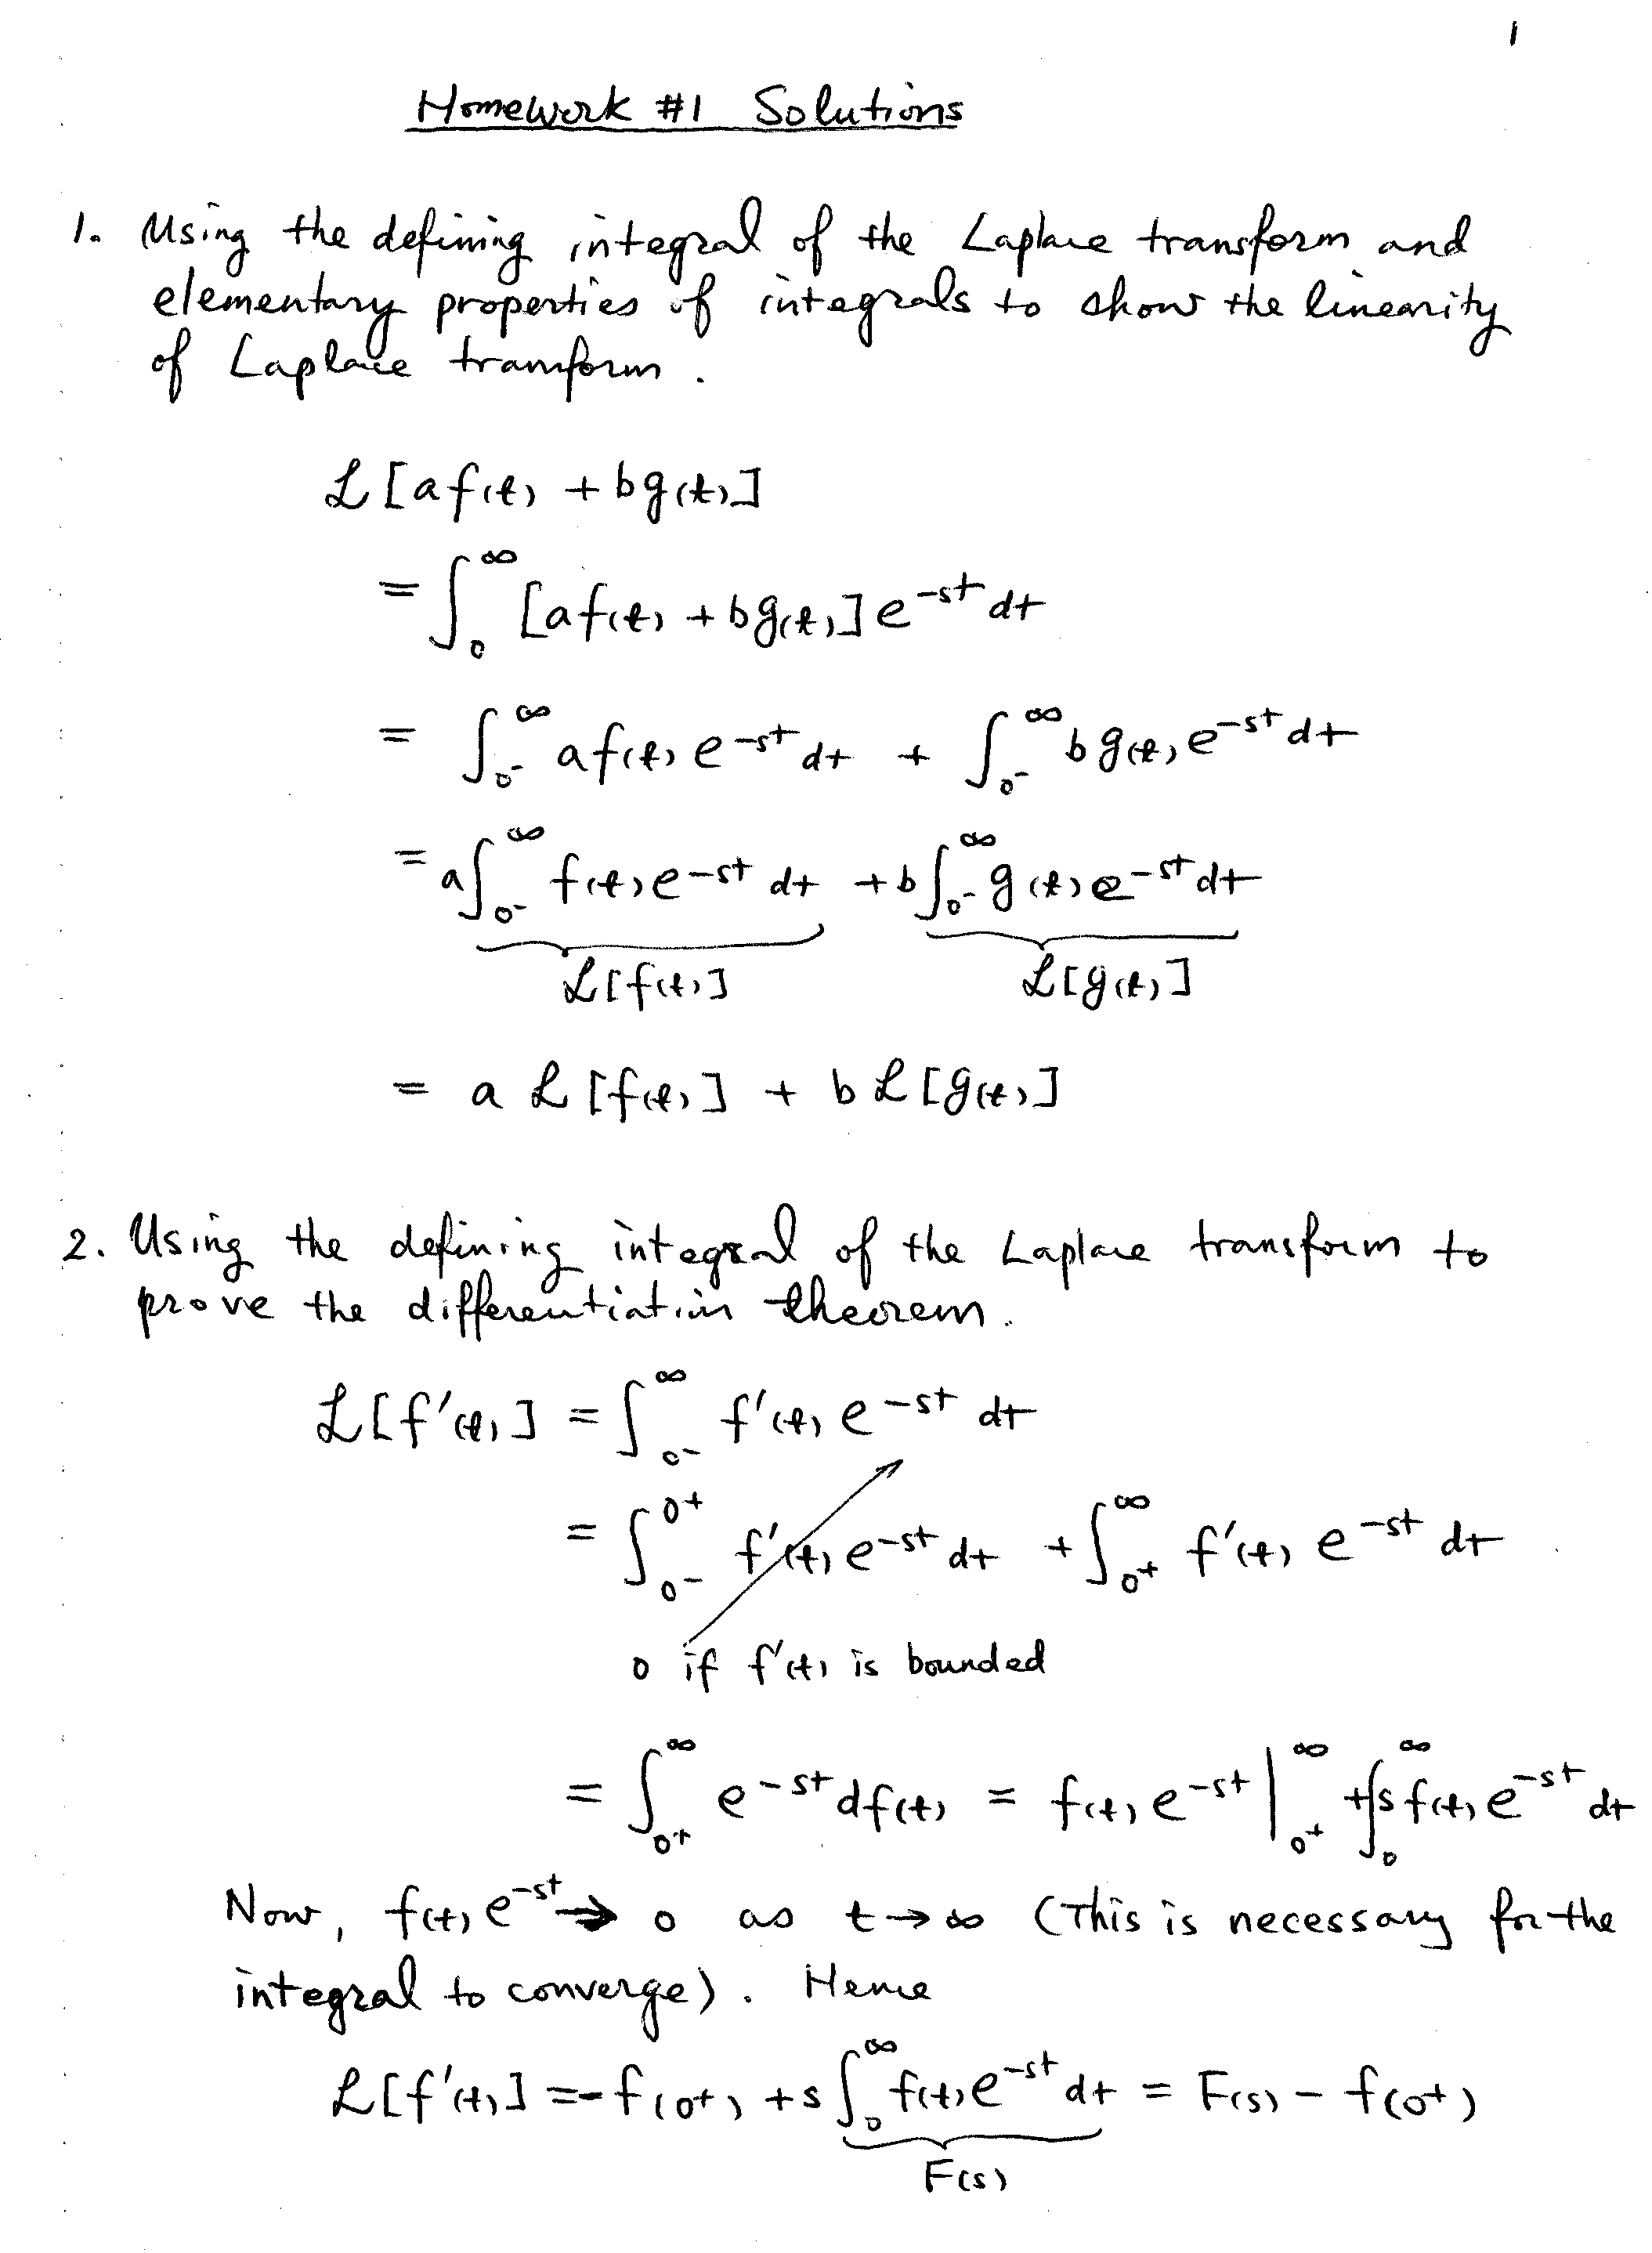 1
Homework #1 Solutions
1. Using the defining integral of the Laplace transform and
elementary properties of integrals to show the linearity
of Laplace transform.
ℒ[af(t) + bg(t)]
= ∫₀^∞ [af(t) + bg(t)] e^{-st} dt
= ∫_{0⁻}^∞ af(t) e^{-st} dt + ∫_{0⁻}^∞ bg(t) e^{-st} dt
= a∫_{0⁻}^∞ f(t) e^{-st} dt + b∫_{0⁻}^∞ g(t) e^{-st} dt
ℒ[f(t)] ℒ[g(t)]
= a ℒ[f(t)] + b ℒ[g(t)]
2. Using the defining integral of the Laplace transform to
prove the differentiation theorem.
ℒ[f'(t)] = ∫_{0⁻}^∞ f'(t) e^{-st} dt
= ∫_{0⁻}^{0+} f'(t) e^{-st} dt + ∫_{0+}^∞ f'(t) e^{-st} dt
0 if f'(t) is bounded
= ∫_{0+}^∞ e^{-st} df(t) = f(t) e^{-st} |_{0+}^∞ + ∫₀^∞ s f(t) e^{-st} dt
Now, f(t) e^{-st} → 0 as t → ∞ (This is necessary for the
integral to converge). Hence
ℒ[f'(t)] = -f(0+) + s∫₀^∞ f(t) e^{-st} dt = F(s) - f(0+)
F(s)